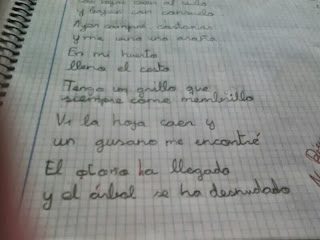 Las hojas caen al suelo
y llegan con consuelo
Ayer compré castañas
y me vino una araña
En mi huerto
lleno el cesto
Tengo un grillo que
siempre come membrillo
Vi la hoja caer y
un gusano me encontré
El otoño ha llegado
y el árbol se ha desnudado